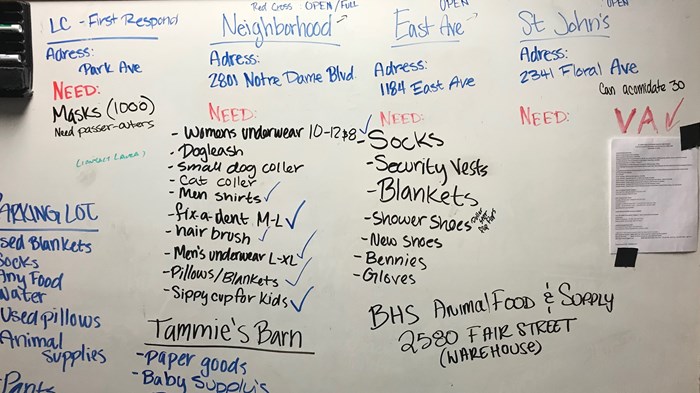 LC - First Respond
Adress:
Park Ave
NEED:
Masks (1000)
Need passer-outers
Red Cross: OPEN/FULL
Neighborhood
Adress:
2801 Notre Dame Blvd.
NEED:
- Womens underwear 10-12 $8
- Dogleash
- Small dog coller
- Cat coller
- Men shirts
- fix-a-dent M-L
- hair brush
- Men's underwear L-XL
- Pillows/Blankets
- Sippy cup for kids
OPEN
East Ave
Adress:
1184 East Ave
NEED:
- Socks
- Security Vests
- Blankets
- Shower Shoes
- New shoes
- Bennies
- Gloves
OPEN
St John's
Adress:
2341 Floral Ave
Can acomidate 30
NEED:
VA
ARKING LOT
sed Blankets
Socks
Any Food
Water
Used pillows
Animal
Supplies
- Pants
Tammie's Barn
- Paper goods
- Baby Supply's
BHS Animal Food & Supply
2580 FAIR STREET
(WAREHOUSE)